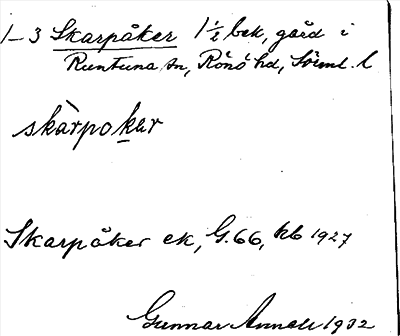 1-3 Skarpåker 1 1/2 bek, gård i
Runtuna sn, Rönö hd, Söml. l
skàrpokar
Skarpåker ek, G.66, hb 1927
Gunnar 1932